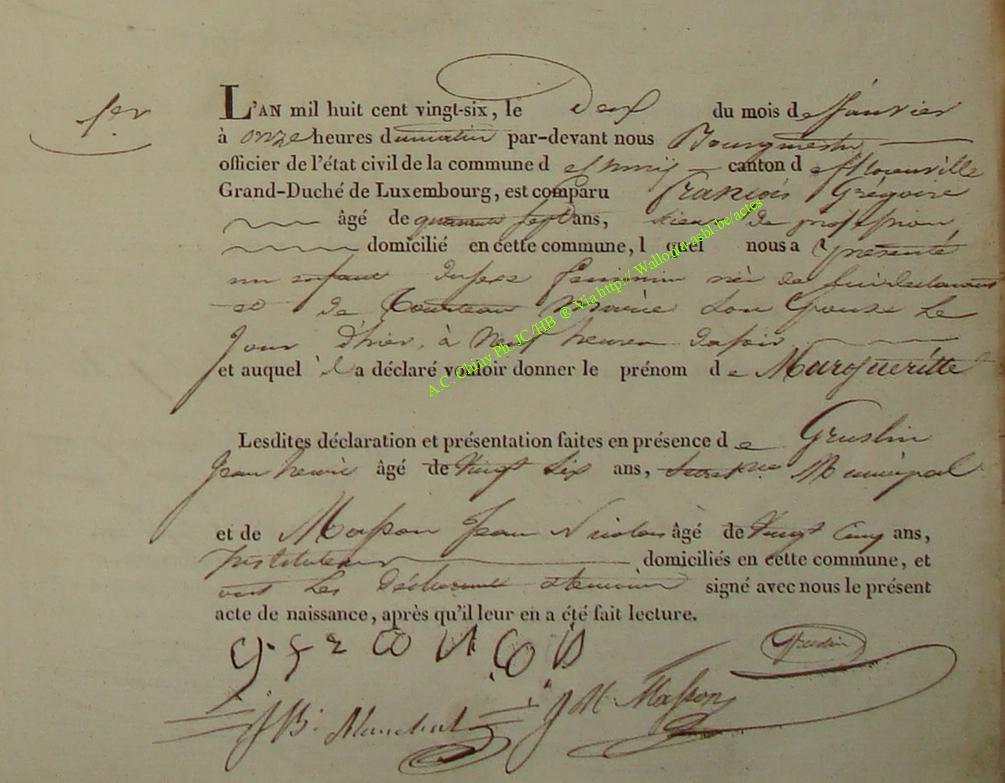 1er
L'AN mil huit cent vingt-six, le deux du mois de Janvier
à onze heures du matin par-devant nous Bourgmestre
officier de l'état civil de la commune de Chiny canton de Florenville
Grand-Duché de Luxembourg, est comparu François Grégoire
âgé de quarante sept ans, de profession
domicilié en cette commune, lequel nous a présenté
un enfant du sexe féminin née de lui déclarant
et de Marie son Epouse Le
jour d'hier, à neuf heures du soir
et auquel il a déclaré vouloir donner le prénom de Margueritte
Lesdites déclaration et présentation faites en présence de Gruslin
Jean henri âgé de Vingt Six ans, Municipal
et de Masson Jean Nicolas âgé de Vingt Cinq ans,
Instituteur domiciliés en cette commune, et
ont Les déclarant et témoins signé avec nous le présent
acte de naissance, après qu'il leur en a été fait lecture.
Gruslin
JB. J N Masson
A.C. Chiny Ph. JC/HB ® Via http://Wallonia-asbl.be/actes